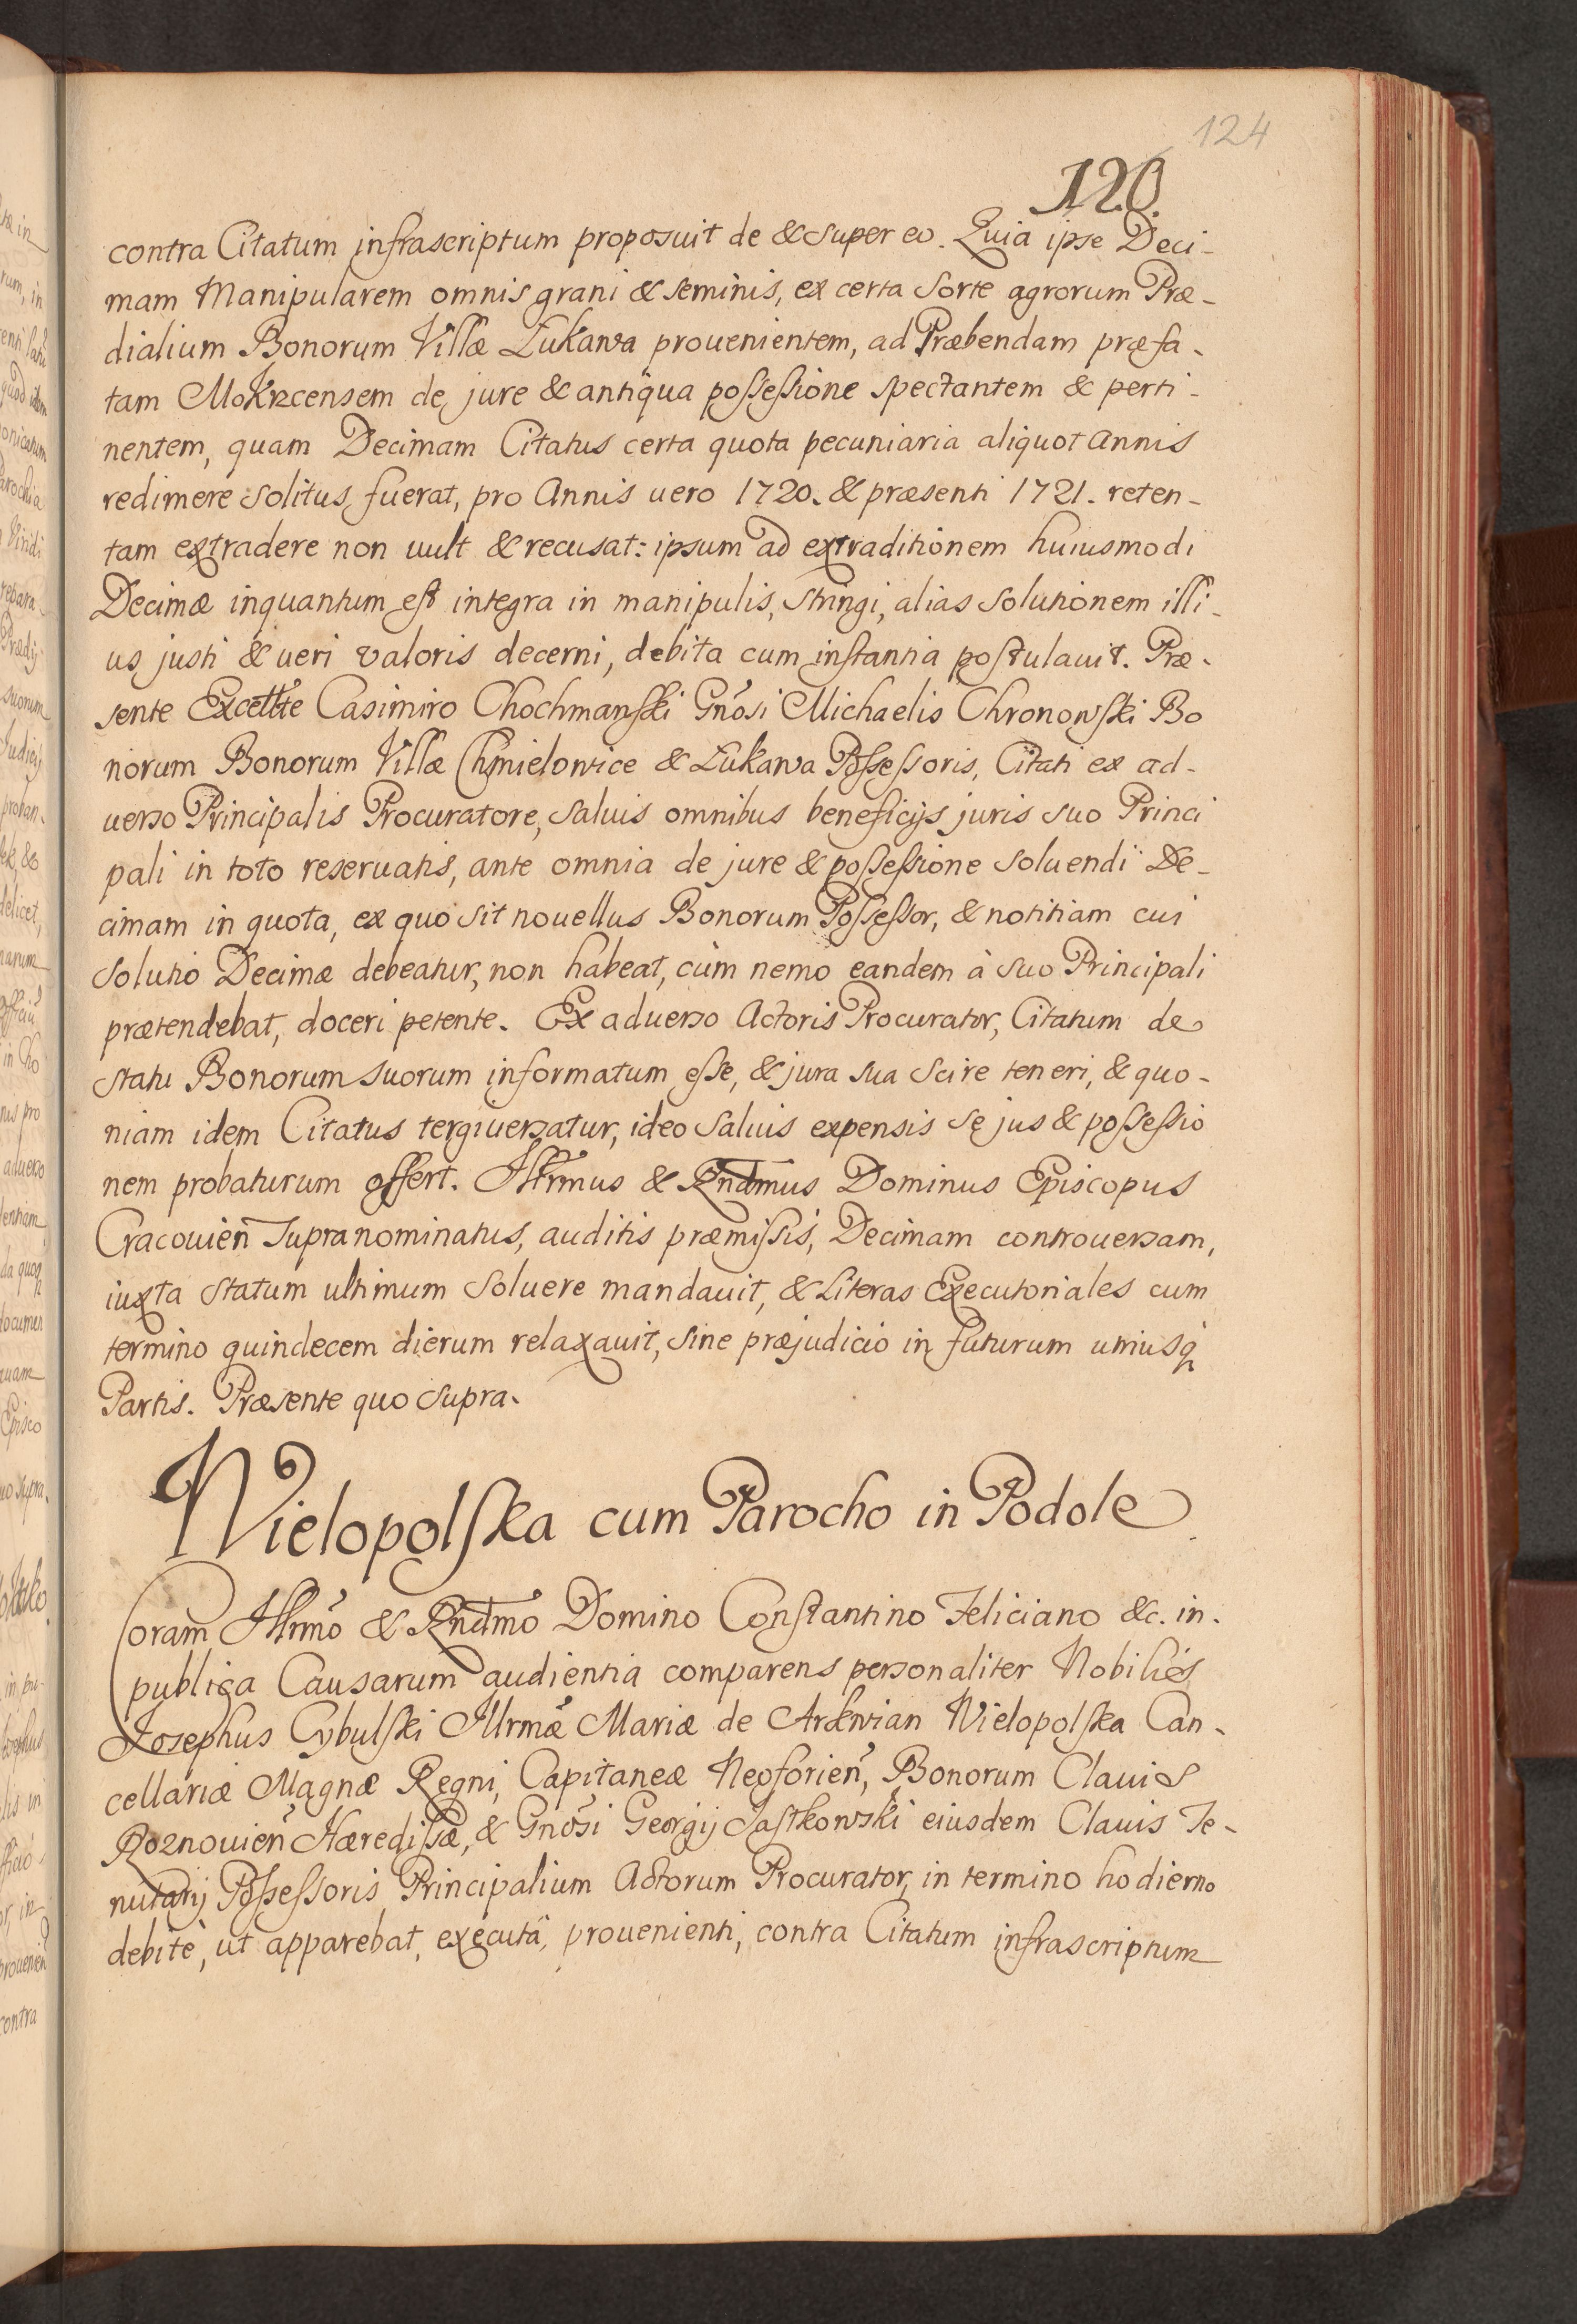 124
120.
contra Citatum infrascriptum proposuit de & super eo. Quia ipse Deci-
mam Manipularem omnis grani & seminis, ex certa sorte agrorum Præ-
dialium Bonorum Villæ Łukawa prouenientem, ad Præbendam præfa-
tam Mokrzcensem de jure & antiqua possessione spectantem & perti-
nentem, quam Decimam Citatus certa quota pecuniaria aliquot Annis
redimere solitus fuerat, pro Annis uero 1720. & præsenti 1721. reten-
tam extradere non uult & recusat: ipsum ad extraditionem huiusmodi
Decimæ inquantum est integra in manipulis, stringi, alias solutionem illi-
us justi & ueri valoris decerni, debita cum instantia postulauit. Præ-
sente Excellte Casimiro Chochmanski Gnosi Michaelis Chronowski Bo
norum Bonorum Villæ Chmielowice & Łukawa Possessoris, Citati ex ad-
uerso Principalis Procuratore, saluis omnibus beneficijs juris suo Princi
pali in toto reseruatis, ante omnia de jure & possessione soluendi De-
cimam in quota, ex quo sit nouellus Bonorum Possessor, & notitiam cui
solutio Decimæ debeatur, non habeat, cùm nemo eandem à suo Principali
prætendebat, doceri petente. Ex aduerso Actoris Procurator, Citatum de
statu Bonorum suorum informatum esse, & jura sua scire teneri, & quo-
niam idem Citatus tergiuersatur, ideo saluis expensis se jus & possessio
nem probaturum offert. Illrmus & Rndmus Dominus Episcopus
Cracouien̄ supranominatus, auditis præmissis, Decimam controuersam,
iuxta statum ultimum soluere mandauit, & Literas Executoriales cum
termino quindecem dierum relaxauit, sine præjudicio in futurum utriusq
Partis. Præsente quo supra.
Wielopolska cum Parocho in Podole
Coram Illrmo & Rndmo Domino Constantino Feliciano &c. in
publica Causarum audientia comparens personaliter Nobilis
Josephus Cybulski Illrmæ Mariæ de Arkwian Wielopolska Can-
cellariæ Magnæ Regni, Capitaneæ Neoforien̄, Bonorum Clauis
Roznouien̄ Hæredissæ, & Gnosi Georgij Jastkowski eiusdem Clauis Te-
nutarij Possessoris Principalium Actorum Procurator, in termino hodierno
debitè, ut apparebat, executâ, prouenienti, contra Citatum infrascriptum